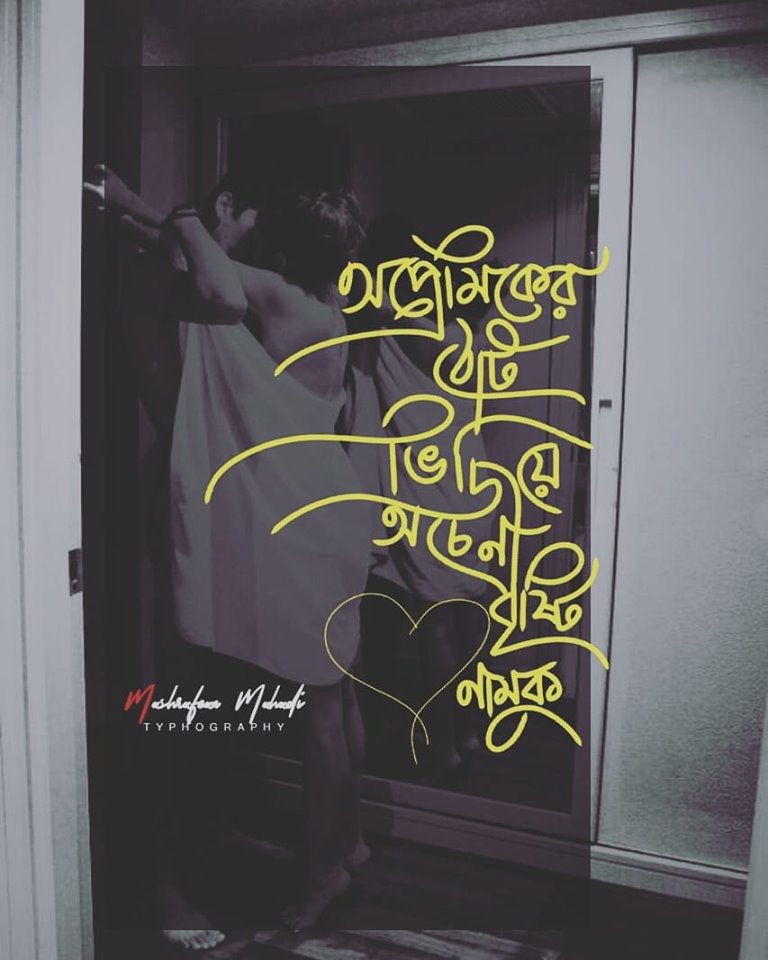 অপ্রেমিকের
ঠোঁট
ভিজিয়ে
অচেনা
বৃষ্টি
নামুক
Mashrafee Mahadi
TYPHOGRAPHY